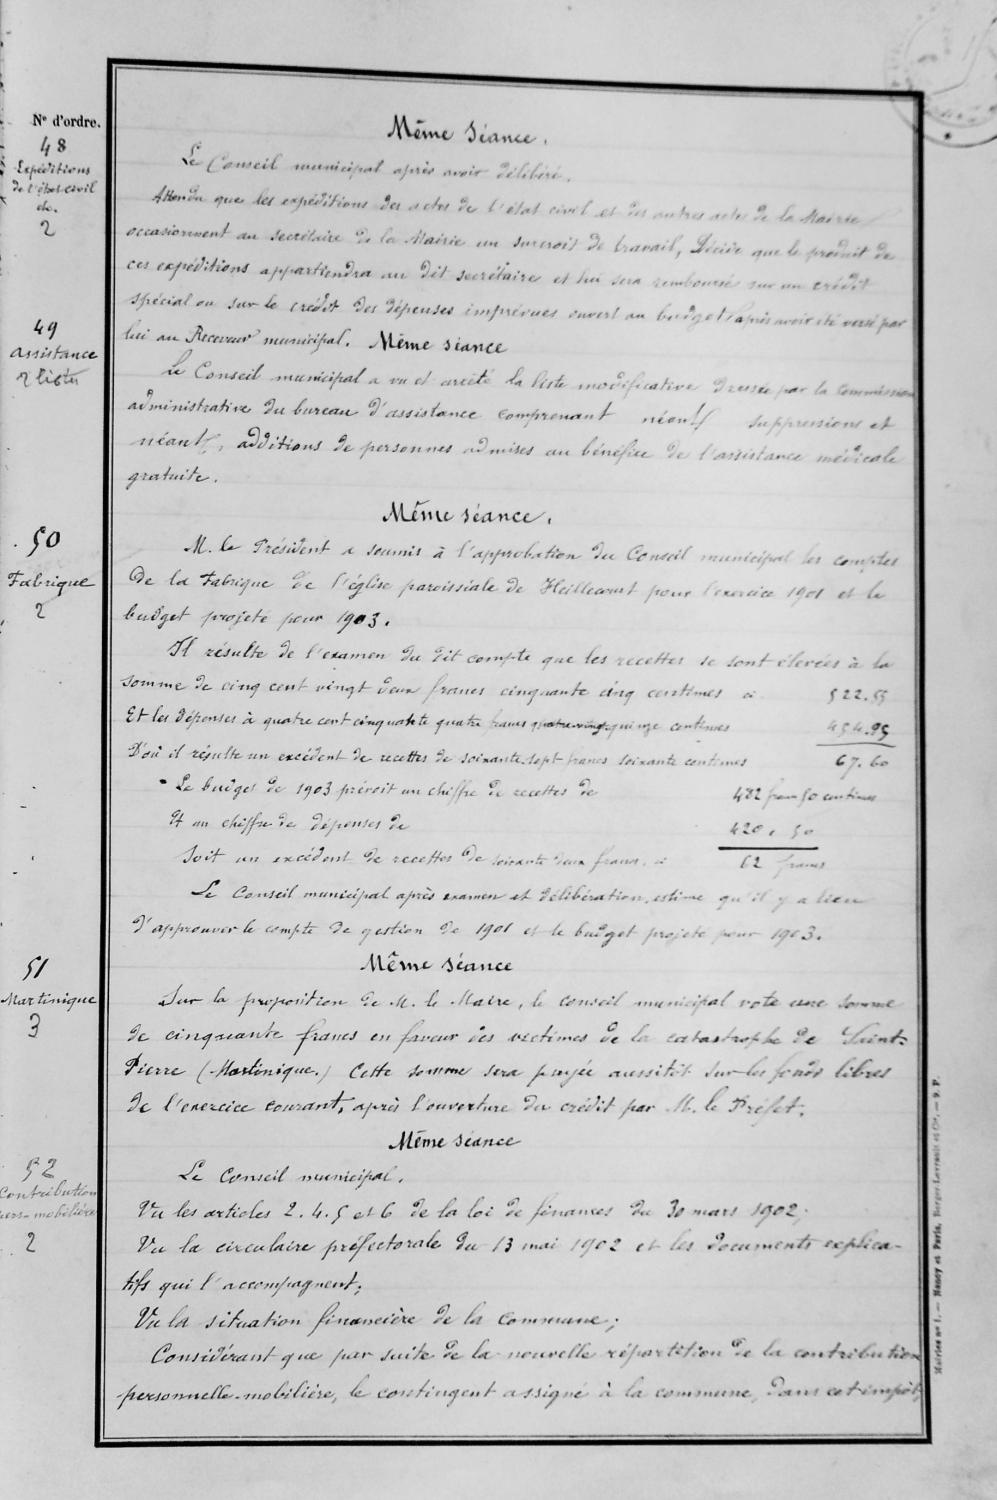 Nº d'ordre.
48
Expéditions
de l'état civil
etc.
2
Même Séance.
Le Conseil municipal après avoir délibéré.
Attendu que les expéditions des actes de l'état civil et des autres actes de la Mairie
occasionnent au secrétaire de la Mairie un surcroit de travail, Décide que le produit de
ces expéditions appartiendra au dit secrétaire et lui sera remboursé sur un crédit
spécial ou sur le crédit des dépenses imprévues ouvert au budget, après avoir été versé par
lui au Receveur municipal. Même séance
49
assistance
2 listes
Le Conseil municipal a vu et arrêté la liste modificative dressée par la commission
administrative du bureau d'assistance comprenant néant suppressions et
néant, additions de personnes admises au bénéfice de l'assistance médicale
gratuite.
Même séance.
50
Fabrique
2
M. le Président a soumis à l'approbation du Conseil municipal les comptes
de la Fabrique de l'église paroissiale de Heillecourt pour l'exercice 1901 et le
budget projeté pour 1903.
Il résulte de l'examen du dit compte que les recettes se sont élevées à la
somme de cinq cent vingt deux francs cinquante cinq centimes ci 522.55
Et les dépenses à quatre cent cinquante quatre francs quatre-vingt-quinze centimes 454.95
D'où il résulte un excédent de recettes de soixante-sept francs soixante centimes 67.60
Le budget de 1903 prévoit un chiffre de recettes de 482 francs 50 centimes
Et un chiffre de dépenses de 420, 50
Soit un excédent de recettes de soixante deux francs. ci 62 francs
Le Conseil municipal après examen et délibération, estime qu'il y a lieu
d'approuver le compte de gestion de 1901 et le budget projeté pour 1903.
Même séance
51
Martinique
3
Sur la proposition de M. le Maire, le conseil municipal vote une somme
de cinquante francs en faveur des victimes de la catastrophe de Saint-
Pierre (Martinique.) Cette somme sera payée aussitôt sur les fonds libres
de l'exercice courant, après l'ouverture du crédit par M. le Préfet.
Même séance
52
Contribution
pers-mobilière
2
Le Conseil municipal.
Vu les articles 2. 4. 5 et 6 de la loi de finances du 30 mars 1902;
Vu la circulaire préfectorale du 13 mai 1902 et les documents explica-
tifs qui l'accompagnent;
Vu la situation financière de la commune;
Considérant que par suite de la nouvelle répartition de la contribution
personnelle-mobilière, le contingent assigné à la commune, dans cet impôt,
Mairies nº 1. — Nancy et Paris, Berger-Levrault et Cie. — 9. P.